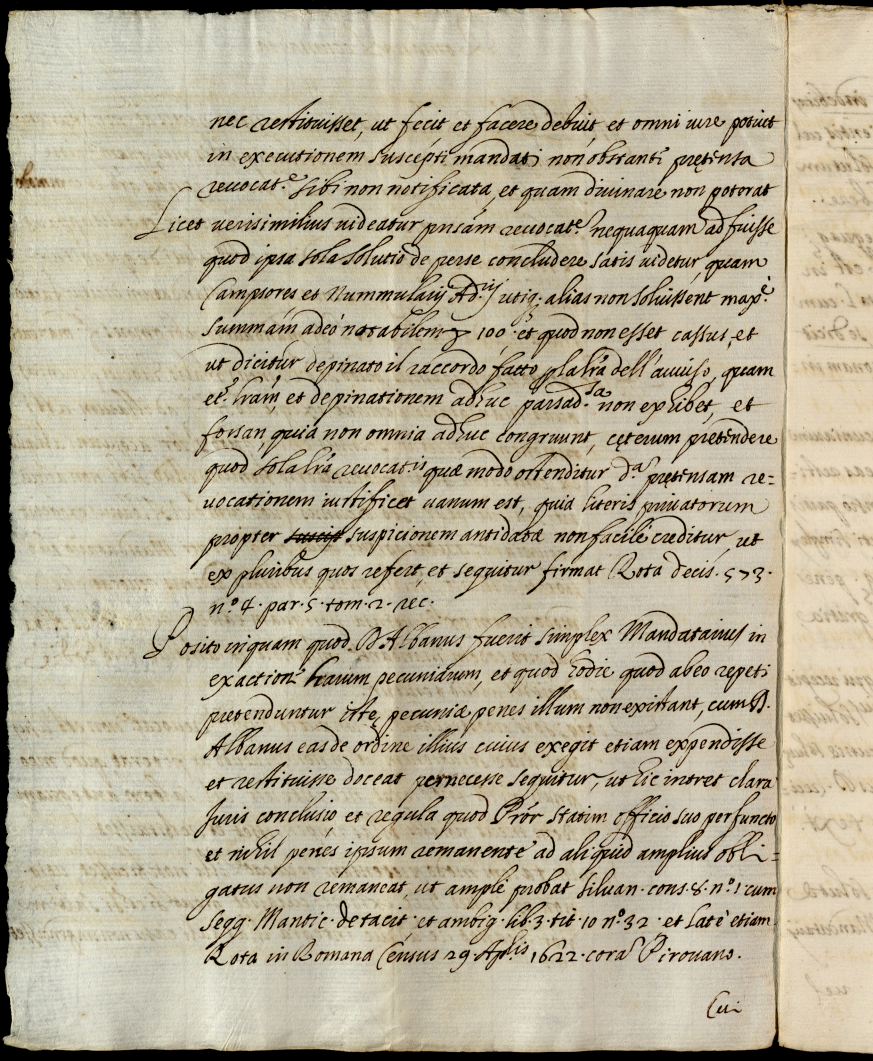 nec restituisset, ut fecit et facere debuit, et omni iure potuit
in executionem suscepti mandati non obstanti prętensa
reuocat.e sibi non notificata, et quam diuinare non poterat
Licet uerisimilius uideatur pnsám reuocat.e nequaquam adfuisse
quod ipsa sola solutio de perse concludere satis uidetur, quam
Campsores et Nummularij Ad.ij utiq; alias non soluissent maxe.
summám adeó notabilem 100. et quod non esset cassus, et
ut dicitur depinato il raccordo fatto p la lrá dell'auuiso, quam
et. lrám, et depinationem adhuc pars ad.sa non exhibet, et
forsan, quia non omnia adhuc congruunt, cęterum prętendere
quod sola lrá reuocat.is quæ modo ostenditur d.a prętensam re=
uocationem iustificet uanum est, quia literis priuatorum
propter suspicionem antidatæ non facilè creditur, ut
ex pluribus quos refert, et sequitur firmat Rota decis. 573.
n.o 4. par. 5. tom. 2. rec.
Posito inquam quod D Albanus fuerit simplex Mandatarius in
exaction. harum pecuniarum, et quod hodie quod ab eo repeti
prętenduntur istę pecuniæ penes illum non existant, cum D.
Albanus eas de ordine illius cuius exegit etiam expendisse
et restituisse doceat pernecesse sequitur, ut hic intret clara
Juris conclusio et regula quod Prór statim officio suo perfuncto
et nihil penès ipsum remanente ad aliquid amplius obli=
gatus non remaneat, ut amplè probat Siluan. cons. 8. n.o 1. cum
segq. Mantic. de tacit. et ambig. lib. 3. tit. 10 n.o 32. et latè etiam
Rota in Romana Census 29. Aplis 1622. corā Pirouano.
Cui